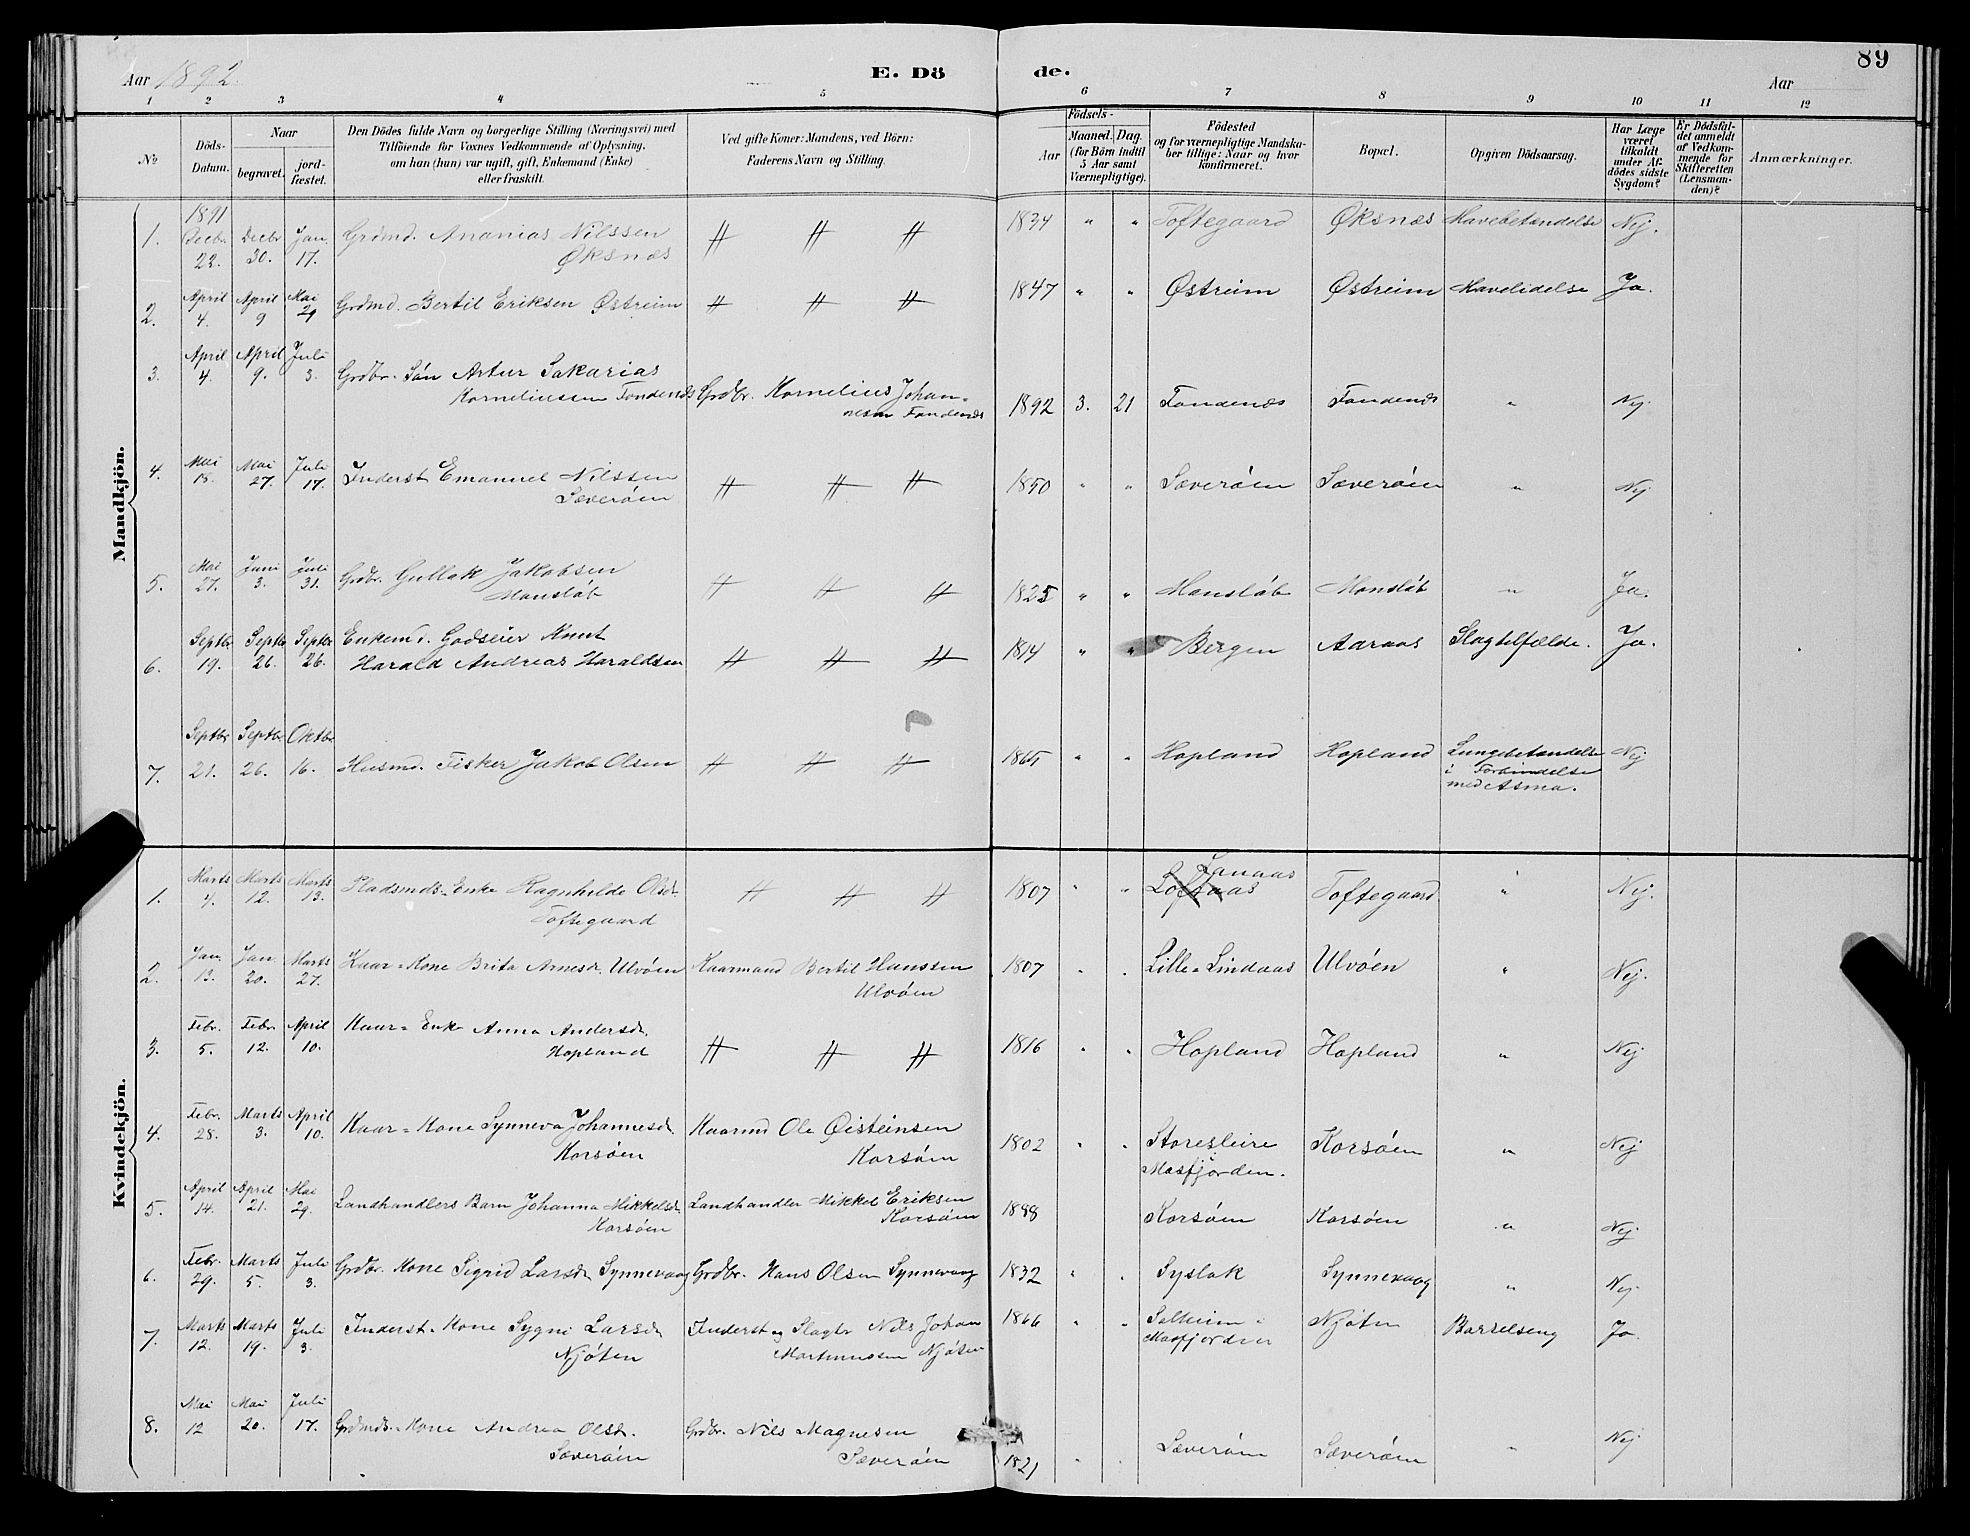 89
Aar 1892.
E. Dö
de.
Aar
1 2 3 4 5 6 7 8 9 10 11 12
No
Döds-
Datum.
Naar
begravet.
jord-
fæstet.
Den Dödes fulde Navn og borgerlige Stilling (Næringsvei) med
Tilföiende for Voxnes Vedkommende af Oplysning,
om han (hun) var ugift, gift, Enkemand (Enke)
eller fraskilt.
Ved gifte Koner: Mandens, ved Börn:
Faderens Navn og Stilling.
Födsels-
Aar
Maaned. Dag.
(for Börn indtil
5 Aar samt
Værnepligtige).
Födested
og for værnepligtige Mandska-
ber tillige: Naar og hvor
konfirmeret.
Bopæl.
Opgiven Dödsaarsag.
Har Læge
været
tilkaldt
under Af-
dödes sidste
Sygdom?
Er Dödsfal-
det anmeldt
af Vedkom-
mende for
Skifteretten
(Lensman-
den)?
Anmærkninger.
Mandkjön.
1891
1. Decbr. 22. Decbr 30. Jan. 17. Grdmd. Ananias Nilssen
Øksnæs
1834 " " Toftegaard Øksnæs Mavebetændelse Nej.
2. April 4. April 9 Mai 29 Grdmd. Bertil Eriksen Østreim 1847 " " Østreim Østreim Mavelidelse Ja.
3. April 4. April 9. Juli 3. Grdbr. Sön Artur Sakarias
Korneliussen Fondenæs Grdbr. Kornelius Johan-
nesen Fondenæs
1892 3. 21 Fondenæs Fondenæs " Nej.
4. Mai 18. Mai 27. Juli 17. Inderst Emanuel Nilssen
Sæveröen
1850 " " Sæveröen Sæveröen " Nej.
5. Mai 27. Juni 3. Juli 31. Grdbr. Gullak Jakobsen
Monslöb
1825 " " Monslöb Monslöb " Ja.
6. Septbr. 19. Septbr 26. Septbr 26. Enkemd. Godseier Knut
Harald Andreas Haraldsen
1814 " " Bergen Aaraas Slagtilfælde. Ja.
7. Septbr 21. Septbr 26. Oktbr. 16. Husmd. Fisker Jakob Olsen
1865 " " Hopland Hopland Lungebetændelse Nej
i Forbindelse
med Asma.
Kvindekjön.
1. Marts 4. Marts 12. Marts 13. Pladsmds. Enke Ragnhilde Olsd.
Toftegaard
1807 " " Lanaas
Toftegaard " Nej.
2. Jan. 13. Jan. 20. Marts 27. Kaar-Kone Brita Arnesd. Ulvöen Kaarmand Bertil Hanssen
Ulvöen
1807 " " Lille-Lindaas Ulvöen " Nej.
3. Febr. 5. Febr 12. April 10. Kaar-Enke Anna Andersd.
Hopland
1816 " " Hopland Hopland " Nej
4. Febr. 28. Marts 3. April 10. Kaar-Kone Synneva Johannesd.
Korsöen
Kaarmd Ole Øisteinsen
Korsöen
1802 " " Storesleire
Masfjorden.
Korsöen " Nej
5. April 14. April 21. Mai 29. Landhandlers Barn Johanna Mikkelsd.
Korsöen
Landhandler Mikkel Eriksen
Korsöen
1888 Korsöen Korsöen " Nej
6. Febr. 29. Marts 5. Juli 3. Grdbr. Kone Sigrid Larsd. Synnevaag Grdbr. Hans Olsen Synnevaag 1832 " " Syslak Synnevaag " Nej.
7. Marts 12. Marts 19. Juli 3. Inderst-Kone Sygni Larsd.
Njöten
Inderst og Slagter Nils Johan
Martinussen Njöten
1866 " " Solheim i
Masfjorden
Njöten Barselseng Ja.
8. Mai 12 Mai 20. Juli 17. Grdmds. Kone Andrea Olsd.
Sæveröen
Grdbr. Nils Magnesen
Sæveröen
1821 " Sæveröen Sæveröen " Nej